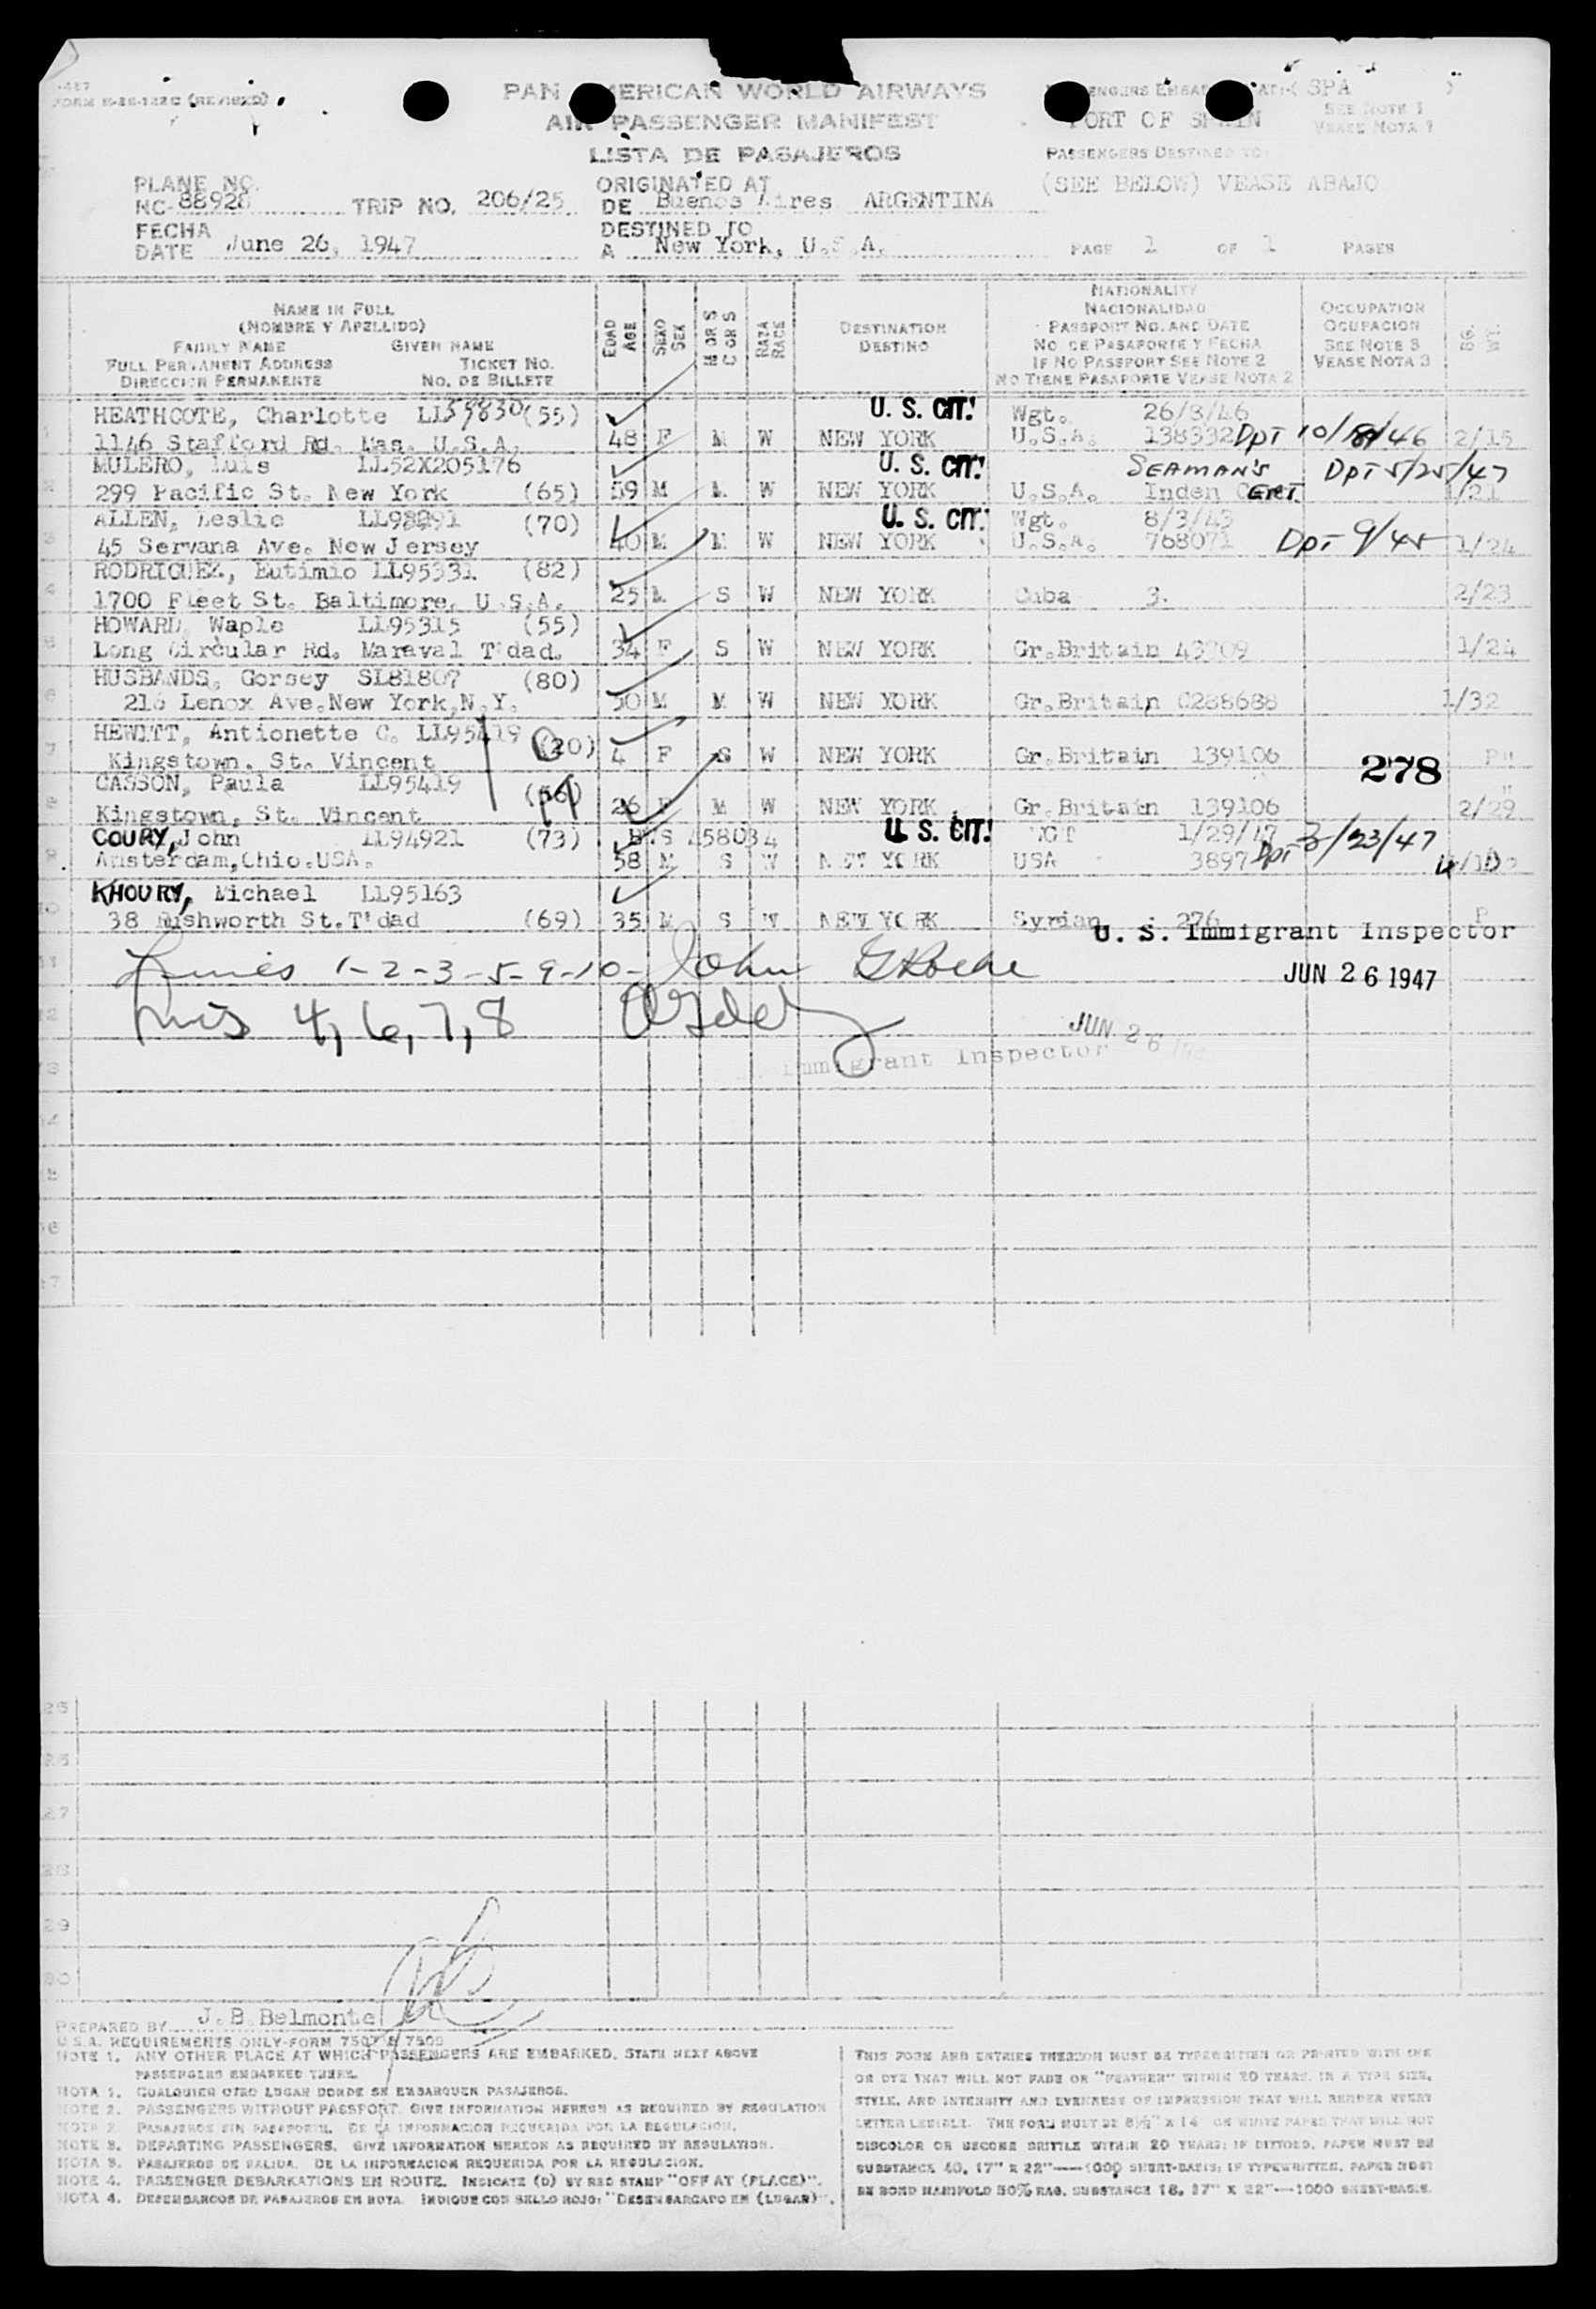 -487
FORM (REVISED)
PAN AMERICAN WORLD AIRWAYS
AIR PASSENGER MANIFEST
LISTA DE PASAJEROS
SPA
PORT OF SPAIN
SEE NOTE 1
VEASE NOTA 1
PASSENGERS DESTINED TO
(SEE BELOW) VEASE ABAJO
PLANE NO.
NC 88928 TRIP NO. 206/25
ORIGINATED AT
DE Buenos Aires ARGENTINA
FECHA
DATE June 26, 1947
DESTINED TO
A New York, U.S.A.
PAGE 1 OF 1 PAGES
NAME IN FULL
(NOMBRE Y APELLIDO)
FAMILY NAME GIVEN NAME
FULL PERMANENT ADDRESS TICKET NO.
DIRECCION PERMANENTE NO. DE BILLETE
EDAD AGE
SEXO SEX
M OR S C OR S
RAZA RACE
DESTINATION
DESTINO
NATIONALITY
NACIONALIDAD
PASSPORT NO. AND DATE
NO. DE PASAPORTE Y FECHA
IF NO PASSPORT SEE NOTE 2
NO TIENE PASAPORTE VEASE NOTA 2
OCCUPATION
OCUPACION
SEE NOTE 3
VEASE NOTA 3
HEATHCOTE, Charlotte LL59830 (55) U. S. CIT! Wgt. 26/8/46
1146 Stafford Rd. Mas. U.S.A. 48 F M W NEW YORK U.S.A. 138332 Dpt 10/18/46 2/15
MULERO, Luis LL52X205176 U. S. CIT! SEAMAN'S Dpt 5/25/47
299 Pacific St. New York (65) 59 M M W NEW YORK U.S.A. Inden CERT. 1/21
ALLEN, Leslie (70) U. S. CIT! Wgt. 8/3/43
45 Servana Ave. New Jersey 40 M M W NEW YORK U.S.A. 768071 Dpt 9/45 1/24
RODRIGUEZ, Eutimio LL95331 (82)
1700 Fleet St. Baltimore, U.S.A. 25 M S W NEW YORK Cuba 3. 2/23
HOWARD Waple LL95315 (55)
Long Circular Rd. Maraval T'dad. 34 F S W NEW YORK Gr.Britain 1/24
HUSBANDS, Gorsey SL81807 (80)
216 Lenox Ave.New York,N.Y. 50 M M W NEW YORK Gr.Britain C288688 1/32
HEWITT, Antionette C. LL95419 (20)
Kingstown. St. Vincent 4 F S W NEW YORK Gr.Britain 139106 278
CASSON, Paula LL95419 (56)
Kingstown, St. Vincent 26 F M W NEW YORK Gr.Britain 139106 2/29
COURY, John LL94921 (73) U. S. CIT! WGT 1/29/47
Amsterdam,Ohio.USA. 58 M S W NEW YORK USA 3897 Dpt 3/23/47
KHOURY, Michael LL95163
38 Rushworth St.T'dad (69) 35 M S W NEW YORK Syrian 276 P
U. S. Immigrant Inspector
1-2-3-5-9-10- John
JUN 26 1947
4, 6, 7, 8
JUN 26
Immigrant Inspector
PREPARED BY J.B.Belmonte
U.S.A. REQUIREMENTS ONLY-FORM 7507 & 7509
NOTE 1. ANY OTHER PLACE AT WHICH PASSENGERS ARE EMBARKED. STATE NEXT ABOVE
PASSENGERS EMBARKED THERE.
NOTA 1. CUALQUIER OTRO LUGAR DONDE SE EMBARQUEN PASAJEROS.
NOTE 2. PASSENGERS WITHOUT PASSPORT. GIVE INFORMATION HEREON AS REQUIRED BY REGULATION
NOTA 2. PASAJEROS SIN PASAPORTE. DE LA INFORMACION REQUERIDA POR LA REGULACION.
NOTE 3. DEPARTING PASSENGERS. GIVE INFORMATION HEREON AS REQUIRED BY REGULATION.
NOTA 3. PASAJEROS DE SALIDA. DE LA INFORMACION REQUERIDA POR LA REGULACION.
NOTE 4. PASSENGER DEBARKATIONS EN ROUTE. INDICATE (D) BY RED STAMP "OFF AT (PLACE)".
NOTA 4. DESEMBARCOS DE PASAJEROS EN RUTA. INDIQUE CON SELLO ROJO: "DESEMBARCATO EN (LUGAR)".
THIS FORM AND ENTRIES THEREON MUST BE TYPEWRITTEN OR PRINTED WITH INK
OR DYE THAT WILL NOT FADE OR "FEATHER" WITHIN 20 YEARS, IN A TYPE SIZE,
STYLE, AND INTENSITY AND EVENNESS OF IMPRESSION THAT WILL RENDER EVERY
LETTER LEGIBLE. THE FORM MUST BE 8½" X 14" ON WHITE PAPER THAT WILL NOT
DISCOLOR OR BECOME BRITTLE WITHIN 20 YEARS; IF DITTOED, PAPER MUST BE
SUBSTANCE 40, 17" X 22"—1000 SHEET-BASIS; IF TYPEWRITTEN, PAPER MUST
BE BOND MANIFOLD 50% RAG, SUBSTANCE 18, 17" X 22"—1000 SHEET-BASIS.